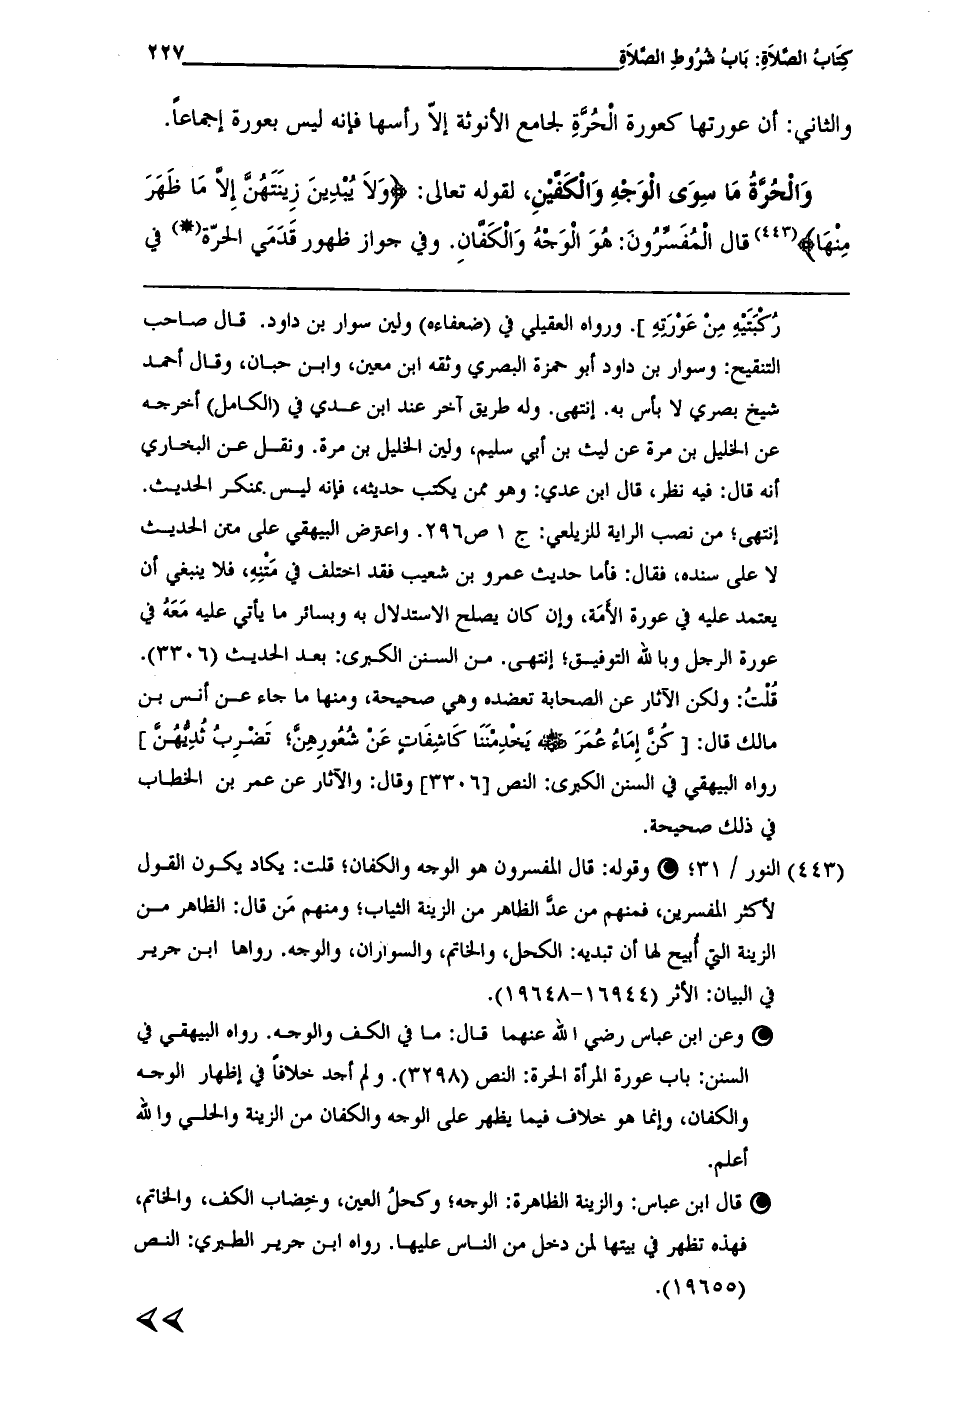 كِتَابُ الصَّلَاةِ: بَابُ شُرُوطِ الصَّلَاةِ ٢٢٧
والثاني: أن عورتها كعورة الْحُرَّةِ لجامع الأنوثة إلاّ رأسها فإنه ليس بعورة إجماعاً.
وَالْحُرَّةُ مَا سِوَى الْوَجْهِ وَالْكَفَّيْنِ، لقوله تعالى: ﴿وَلاَ يُبْدِينَ زِينَتَهُنَّ إِلاَّ مَا ظَهَرَ
مِنْهَا﴾(٤٤٣) قال الْمُفَسِّرُونَ: هُوَ الْوَجْهُ وَالْكَفَّانِ. وفي جواز ظهور قَدَمَي الحرّة(*) في
رُكْبَتَيْهِ مِنْ عَوْرَتِهِ ]. ورواه العقيلي في (ضعفاءه) ولين سوار بن داود. قال صاحب
التنقيح: وسوار بن داود أبو حمزة البصري وثقه ابن معين، وابن حبان، وقال أحمد
شيخ بصري لا بأس به. إنتهى. وله طريق آخر عند ابن عدي في (الكامل) أخرجه
عن الخليل بن مرة عن ليث بن أبي سليم، ولين الخليل بن مرة. ونقل عن البخاري
أنه قال: فيه نظر، قال ابن عدي: وهو ممن يكتب حديثه، فإنه ليس بمنكر الحديث.
إنتهى؛ من نصب الراية للزيلعي: ج ١ ص٢٩٦. واعترض البيهقي على متن الحديث
لا على سنده، فقال: فأما حديث عمرو بن شعيب فقد اختلف في مَتْنِهِ، فلا ينبغي أن
يعتمد عليه في عورة الأَمَة، وإن كان يصلح الاستدلال به وبسائر ما يأتي عليه مَعَهُ في
عورة الرجل وبالله التوفيق؛ إنتهى. من السنن الكبرى: بعد الحديث (٣٣٠٦).
قُلْتُ: ولكن الآثار عن الصحابة تعضده وهي صحيحة، ومنها ما جاء عن أنس بن
مالك قال: [ كُنَّ إِمَاءُ عُمَرَ ﷺ يَخْدِمْنَنَا كَاشِفَاتٍ عَنْ شُعُورِهِنَّ؛ تَضْرِبُ ثُدِيُّهُنَّ ]
رواه البيهقي في السنن الكبرى: النص [٣٣٠٦] وقال: والآثار عن عمر بن الخطاب
في ذلك صحيحة.
(٤٤٣) النور / ٣١؛ وقوله: قال المفسرون هو الوجه والكفان؛ قلت: يكاد يكون القول
لأكثر المفسرين، فمنهم من عدَّ الظاهر من الزينة الثياب؛ ومنهم مَن قال: الظاهر من
الزينة التي أُبيح لها أن تبديه: الكحل، والخاتم، والسواران، والوجه. رواها ابن جرير
في البيان: الأثر (١٦٩٤٤-١٩٦٤٨).
وعن ابن عباس رضي الله عنهما قال: ما في الكف والوجه. رواه البيهقي في
السنن: باب عورة المرأة الحرة: النص (٣٢٩٨). ولم أجد خلافاً في إظهار الوجه
والكفان، وإنما هو خلاف فيما يظهر على الوجه والكفان من الزينة والحلي والله
أعلم.
قال ابن عباس: والزينة الظاهرة: الوجه؛ وكحلُ العين، وخِضاب الكف، والخاتم،
فهذه تظهر في بيتها لمن دخل من الناس عليها. رواه ابن جرير الطبري: النص
(١٩٦٥٥).